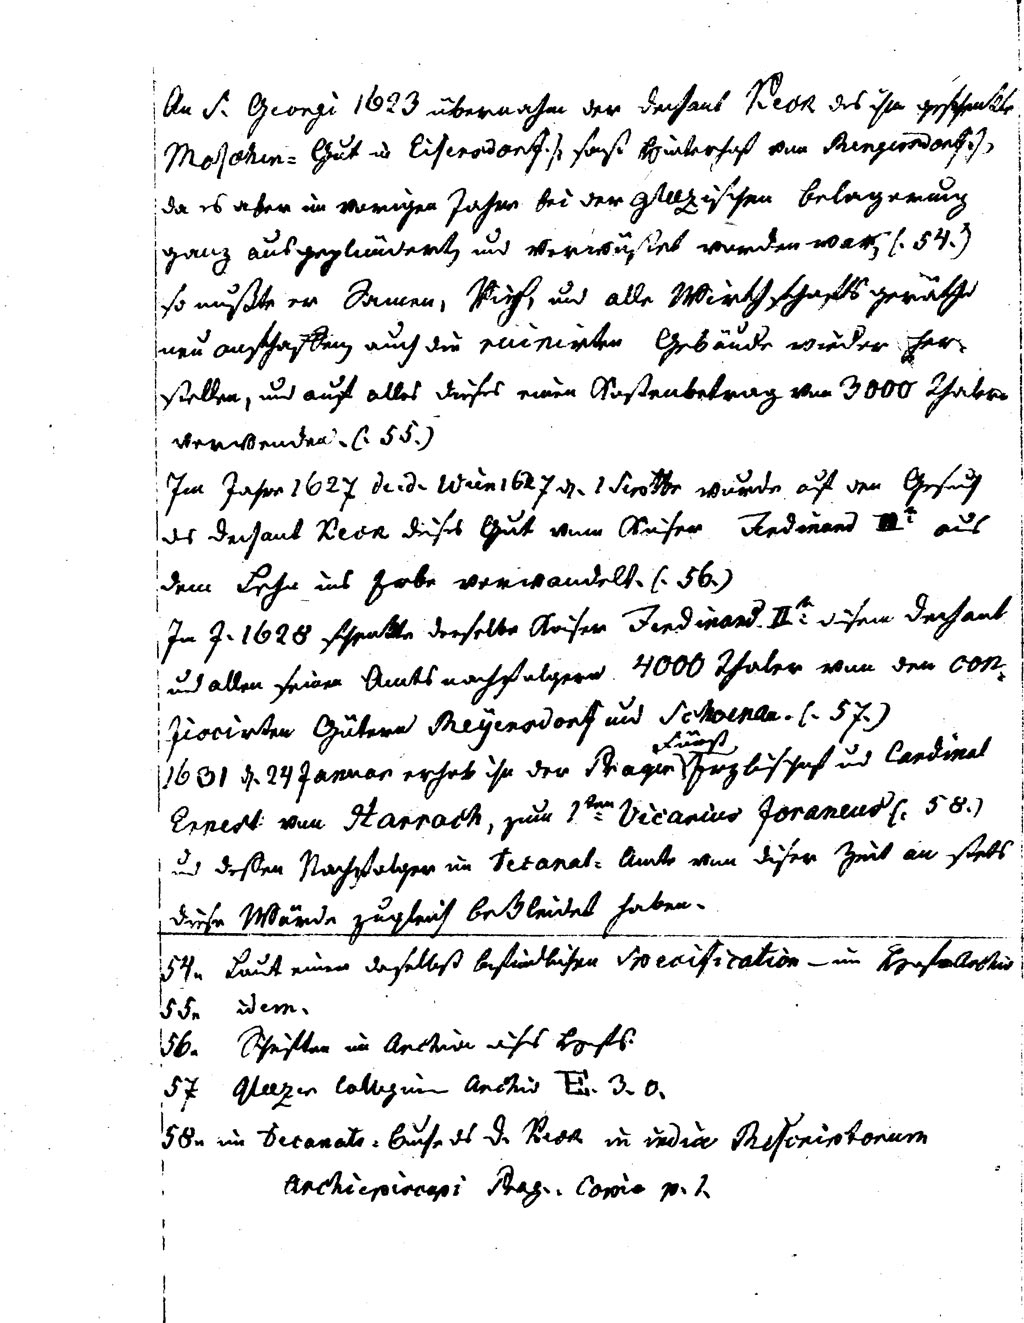 An S. Georgi 1623 übernahm der Dechant Keck das ihm geschenkte
Moschen= Gut in Eisersdorf (: sonst Hinterhof von Rengersdorf :),
da es aber im vorigen Jahre bei der Glazischen Belagerung
ganz ausgeplündert, und verwüstet worden war, (: 54.)
so mußte er Samen, Vieh, und alle Wirthschaftsgeräthe
neu anschaffen, auch die ruinirten Gebäude wieder her-
stellen, und auf alles dieses einen Kostenbetrag von 3000 Thaler
verwenden. (: 55.)
Im Jahre 1627 de d. Wien 1627 d. 1 wurde auf den Gesuch
des Dechant Keck dieses Gut vom Kaiser Ferdinand II. aus
dem Lehn ins Erbe verwandelt. (: 56.)
Im J. 1628 schenkte derselbe Kaiser Ferdinand II. diesem Dechant
und allen seinen Amtsnachfolgern 4000 Thaler von den con-
fiscirten Gütern Reyersdorf und Schoenau. (: 57.)
1631 d. 24 Januar erhob ihn der Prager Fürst Erzbischof und Cardinal
Ernest von Harrach, zum 1ten Vicarius foraneus (: 58.)
und dessen Nachfolger im Decanat= Amte von dieser Zeit an stets
diese Würde zugleich bekleidet haben.
54. Laut einer daselbst befindlichen Specification – im Archiv
55. idem.
56. Schriften im Archiv dieses Hofs.
57 Glazer Collegium Archiv E. 3. o.
58. im Decanats= Buche des D. Keck in indice Rescriptorum
Archiepiscopi Prag.. Copia p. 1.